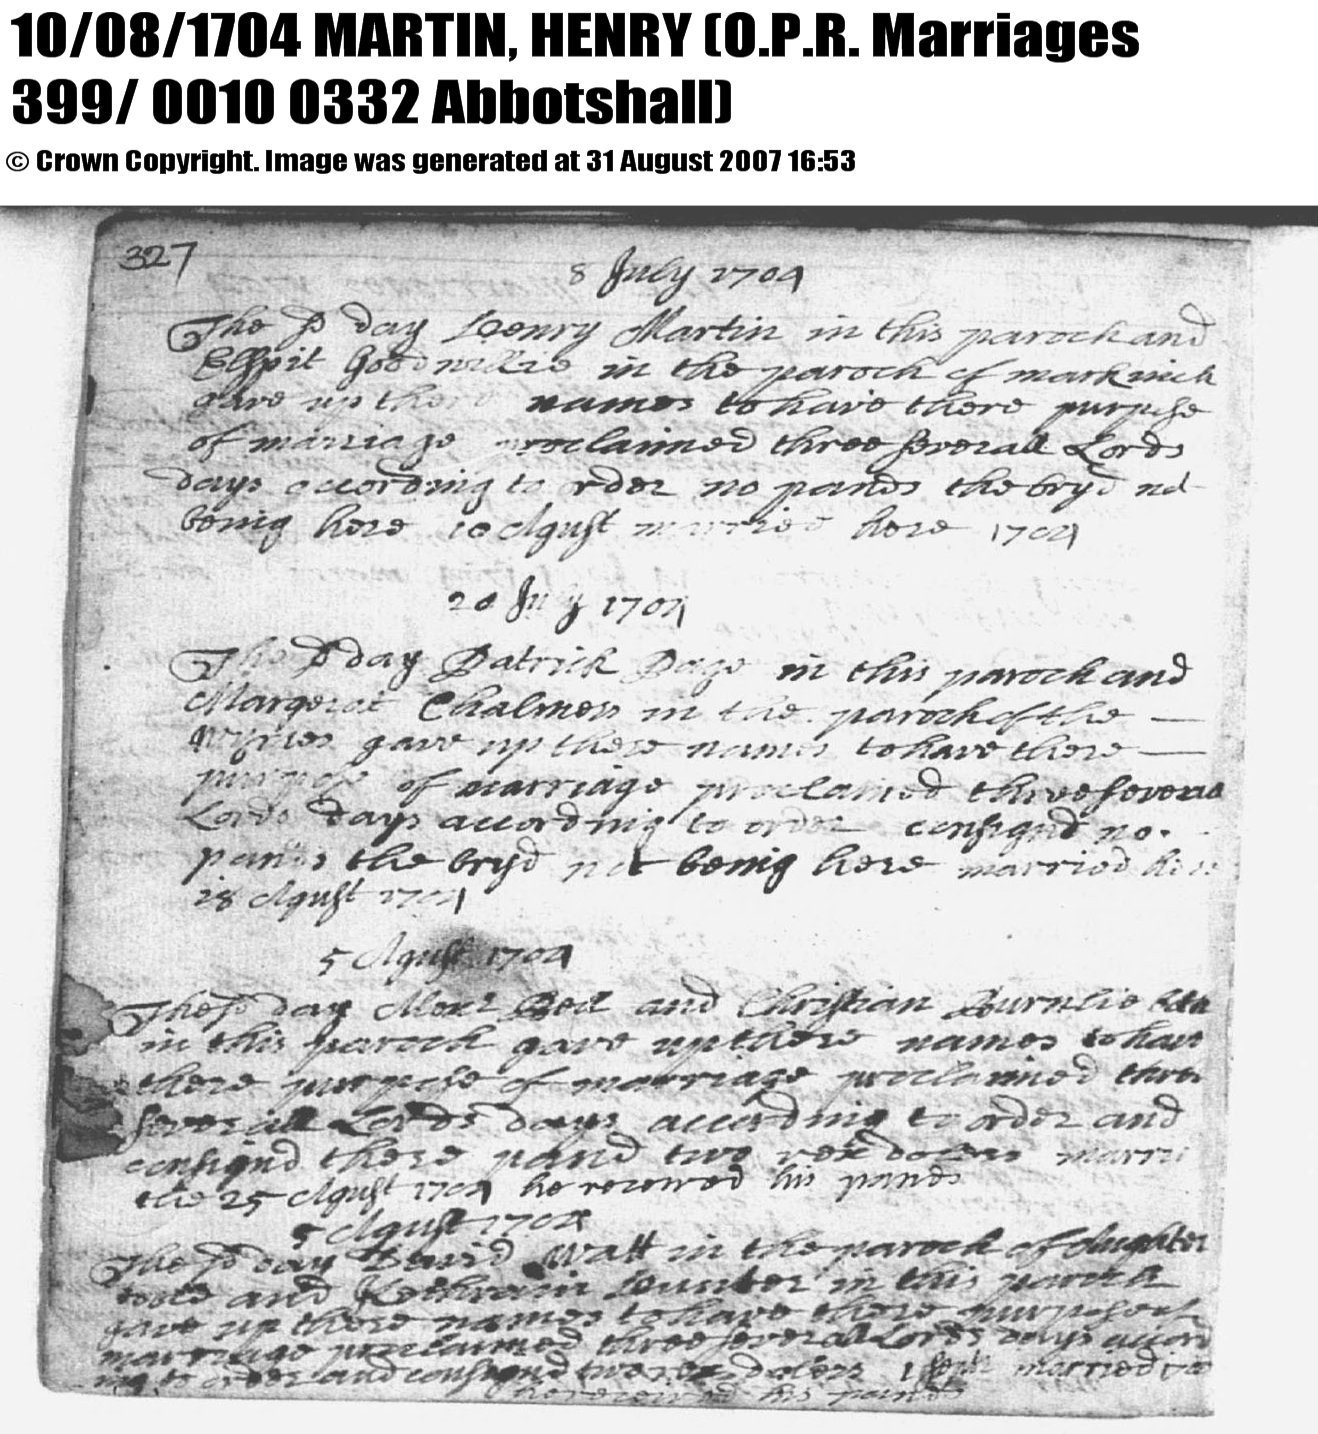 10/08/1704 MARTIN, HENRY (O.P.R. Marriages
399/ 0010 0332 Abbotshall)
© Crown Copyright. Image was generated at 31 August 2007 16:53
327
8 July 1704
The sd day Henry Martin in this paroch and
Elspit Goodwillie in the paroch of markinch
gave up there names to have there purpose
of marriage proclaimed three severall Lords
days according to order no pands the bryd not
being here 10 Agust married here 1704
20 July 1704
The sd day Patrick in this paroch and
Margerat Chalmers in the paroch of the —
Wymes gave up there names to have there —
purpose of marriage proclaimed three severall
Lords days according to order consignd no
pands the bryd not being here married here
18 Agust 1704
5 Agust 1704
The sd day Alexr Bell and Christian Burnlie both
in this paroch gave up there names to have
there purpose of marriage proclaimed three
severall Lords days according to order and
consignd there pand two rex dolers
the 25 Agust 1704 he received his pands
5 Agust 1704
The sd day David Watt in the paroch of
and Kethrain Hunter in this paroch
gave up there names to have there purpose of
marriage proclaimed three severall Lords days accord
ing to order and consignd two rex dolers married
he received his pands